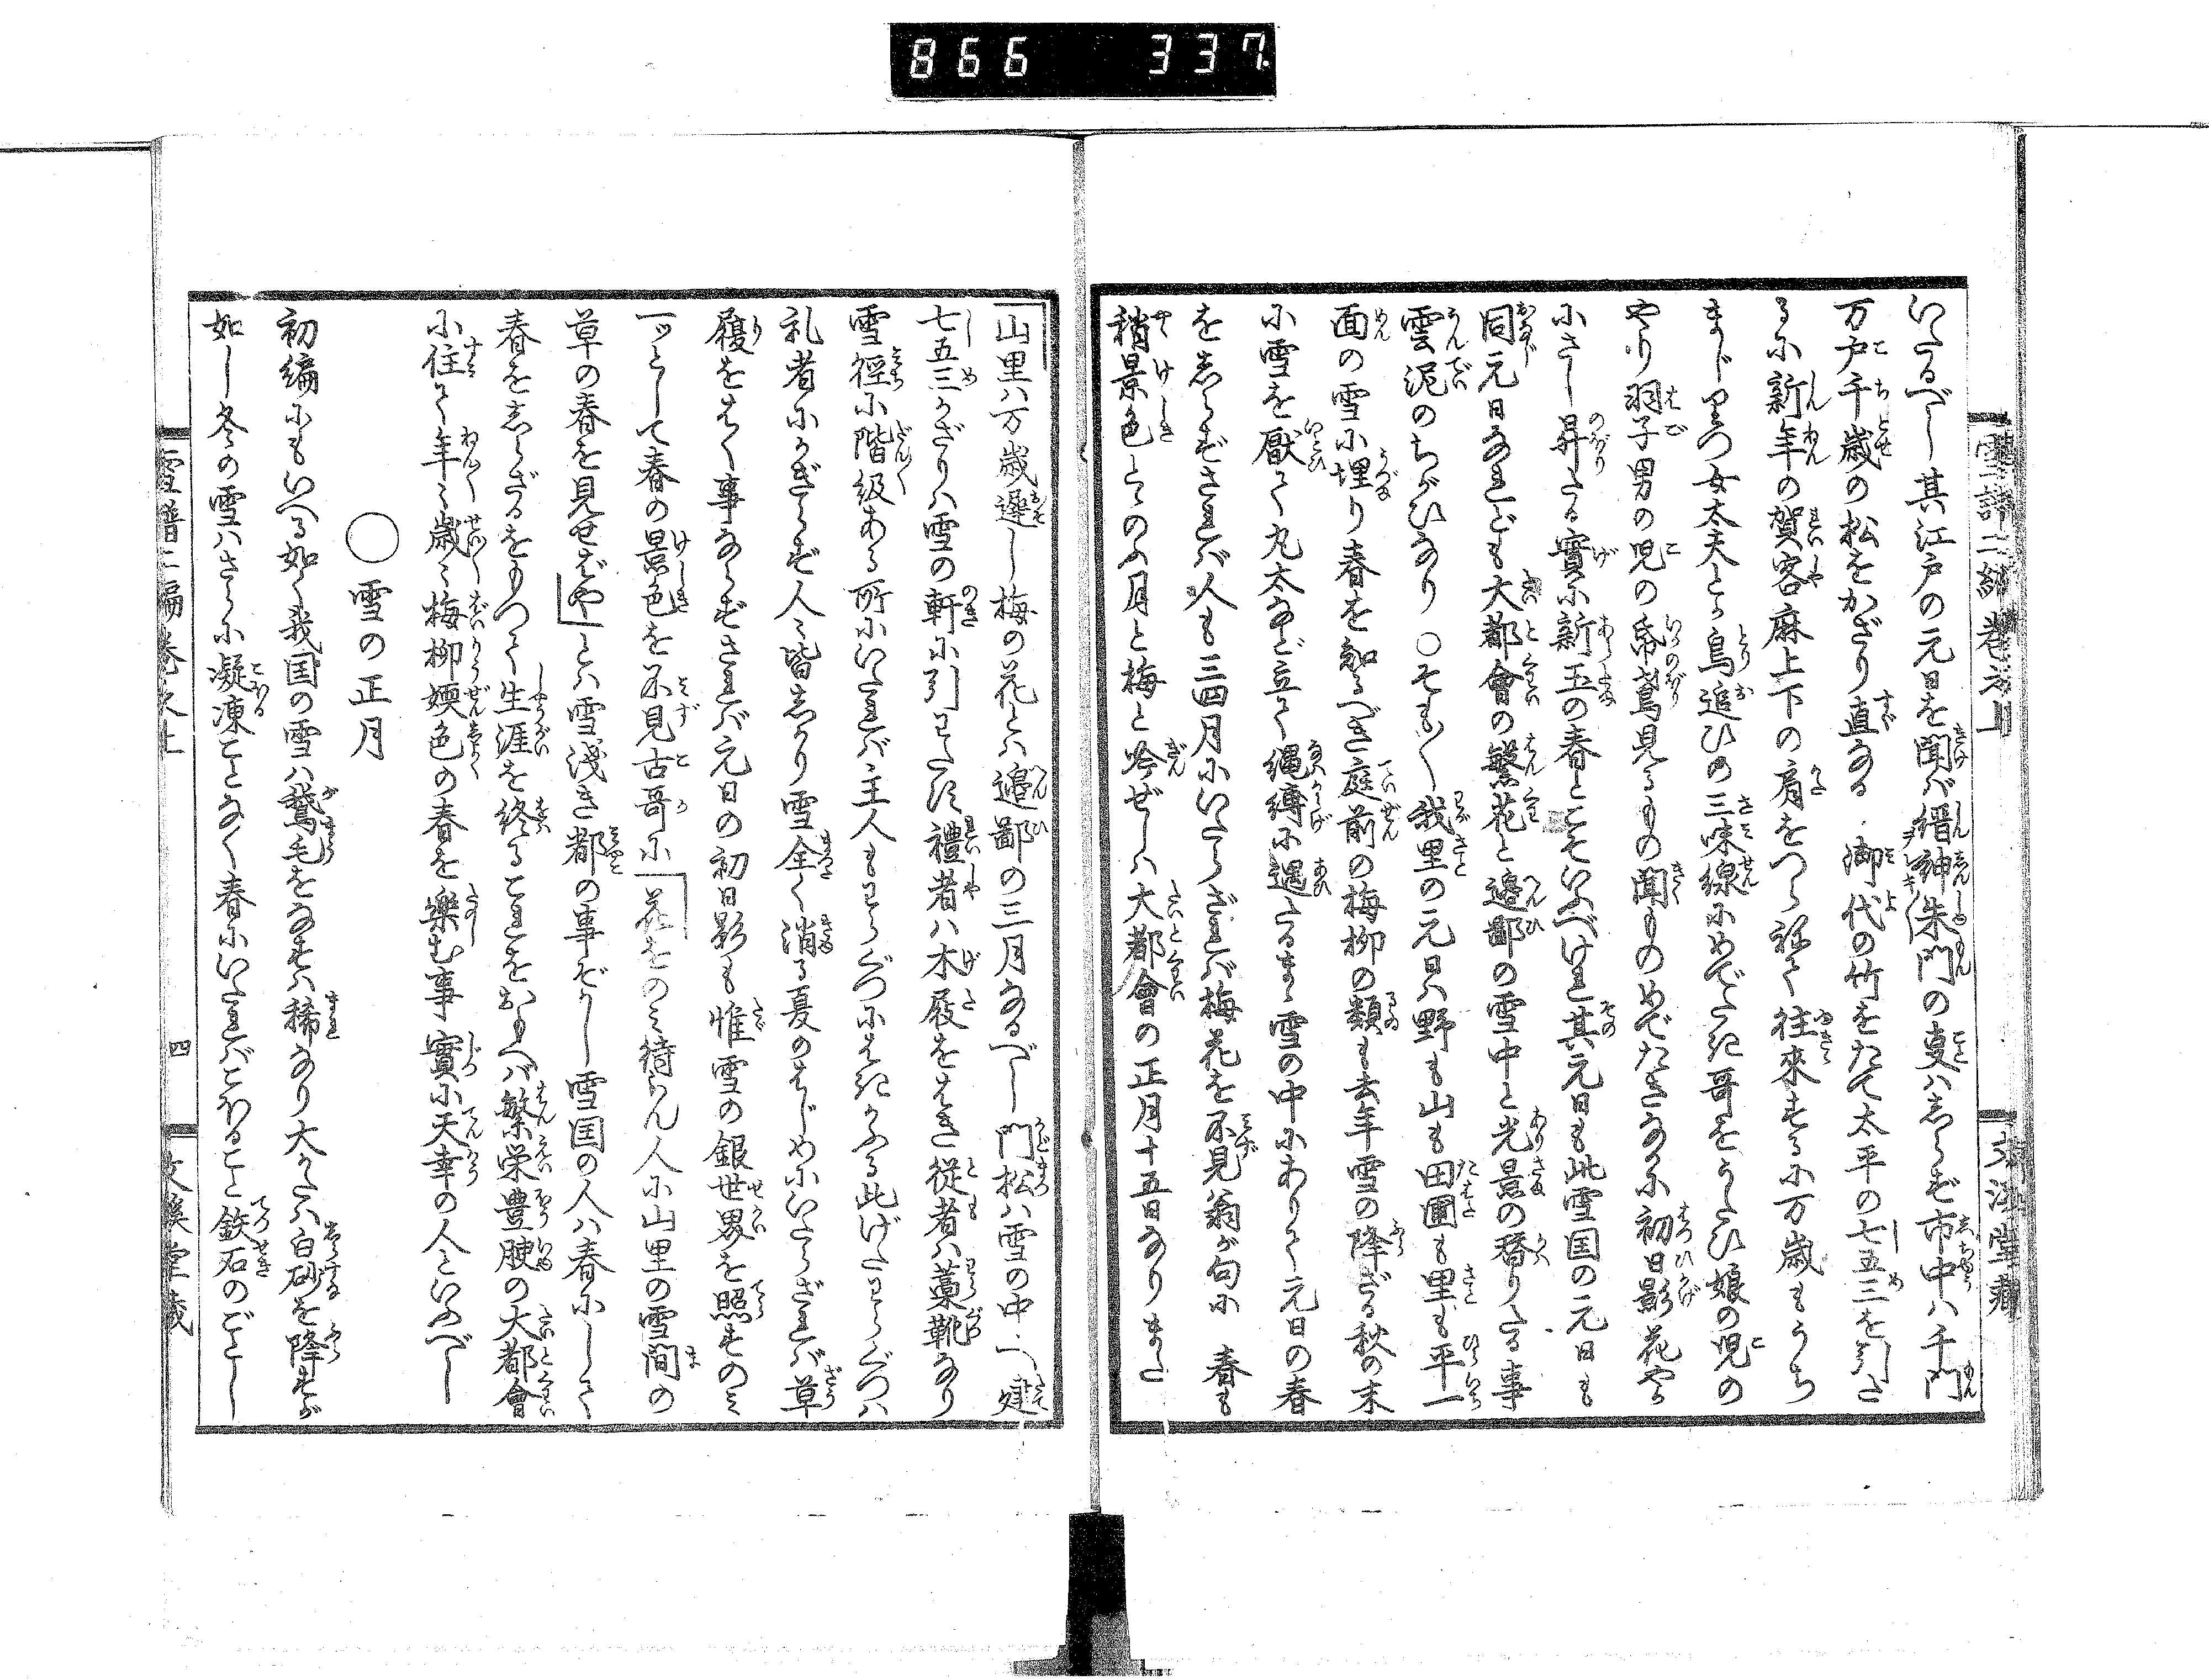 866 337
雪譜二編巻之上
文溪堂藏
いたるべし其江戸の元日を聞ば縉紳朱門の㕝ハしらず市中ハ千門
万戸千歳の松をかざり直なる御代の竹をたて太平の七五三を引た
るに新年の賀客麻上下の肩をつらねて往來するに万歳もうち
まじりつ女太夫とか鳥追ひの三味線にめでたき哥をうたひ娘の児の
やり羽子男の児の帋鳶見るもの聞ものめでたきなかに初日影花やか
にさし昇たる實に新玉の春とこそいふべけれ其元日も此雪国の元日も
同元日なれども大都會の繁花と邉鄙の雪中と光景の替りたる事
雲泥のちがひなり○そも〳〵我里の元日ハ野も山も田圃も里も平一
面の雪に埋り春を知るべき庭前の梅柳の類も去年雪の降ざる秋の末
に雪を厭て丸太など立て縄縛に遇たるまゝ雪の中にありて元日の春
をしらずされバ人も三四月にいたらざれバ梅花を不見翁が句に 春も
稍景色とゝのふ月と梅と吟ぜしハ大都會の正月十五日なりまた
「山里ハ万歳遲し梅の花とハ邉鄙の三月なるべし門松ハ雪の中へ建
七五三かざりハ雪の軒に引わたす禮者ハ木屐をはき従者ハ藁靴なり
雪徑に階級ある所にいたれバ主人もわらぐつにはきかふる此げたわらぐつハ
礼者にかぎらず人々皆しかり雪全く消る夏のはじめにいたらざれバ草
履をはく事ならずされバ元日の初日影も惟雪の銀世界を照すのミ
一ツとして春の景色を不見古哥に「花をのミ待らん人に山里の雪間の
草の春を見せばや」とハ雪浅き都の事ぞかし雪国の人ハ春にして
春をしらざるをもつて生涯を終るこれをおもへバ繁栄豊腴の大都會
に住て年々歳々梅柳媆色の春を樂む事實に天幸の人といふべし
○雪の正月
初編にもいへる如く我国の雪ハ鵞毛をなすハ稀なり大かたハ白砂を降すが
如し冬の雪ハさらに凝凍ことなく春にいたれバこほること鉄石のごとし
雪譜二編巻之上
四
文溪堂藏